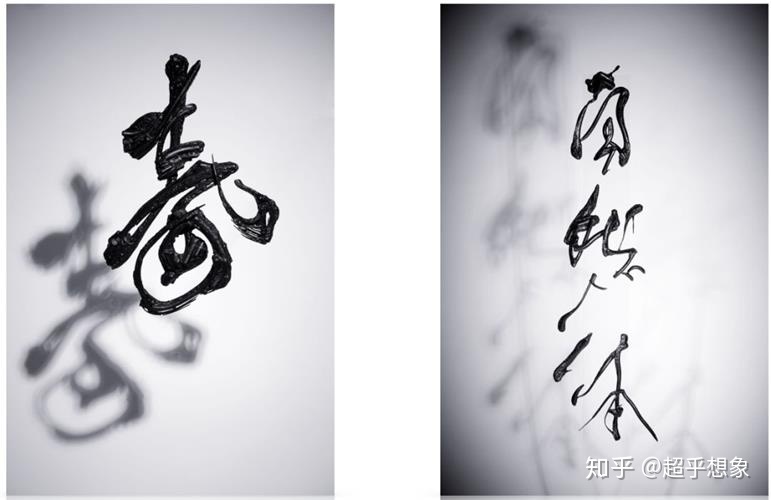 春
自然体
知乎 @超乎想象